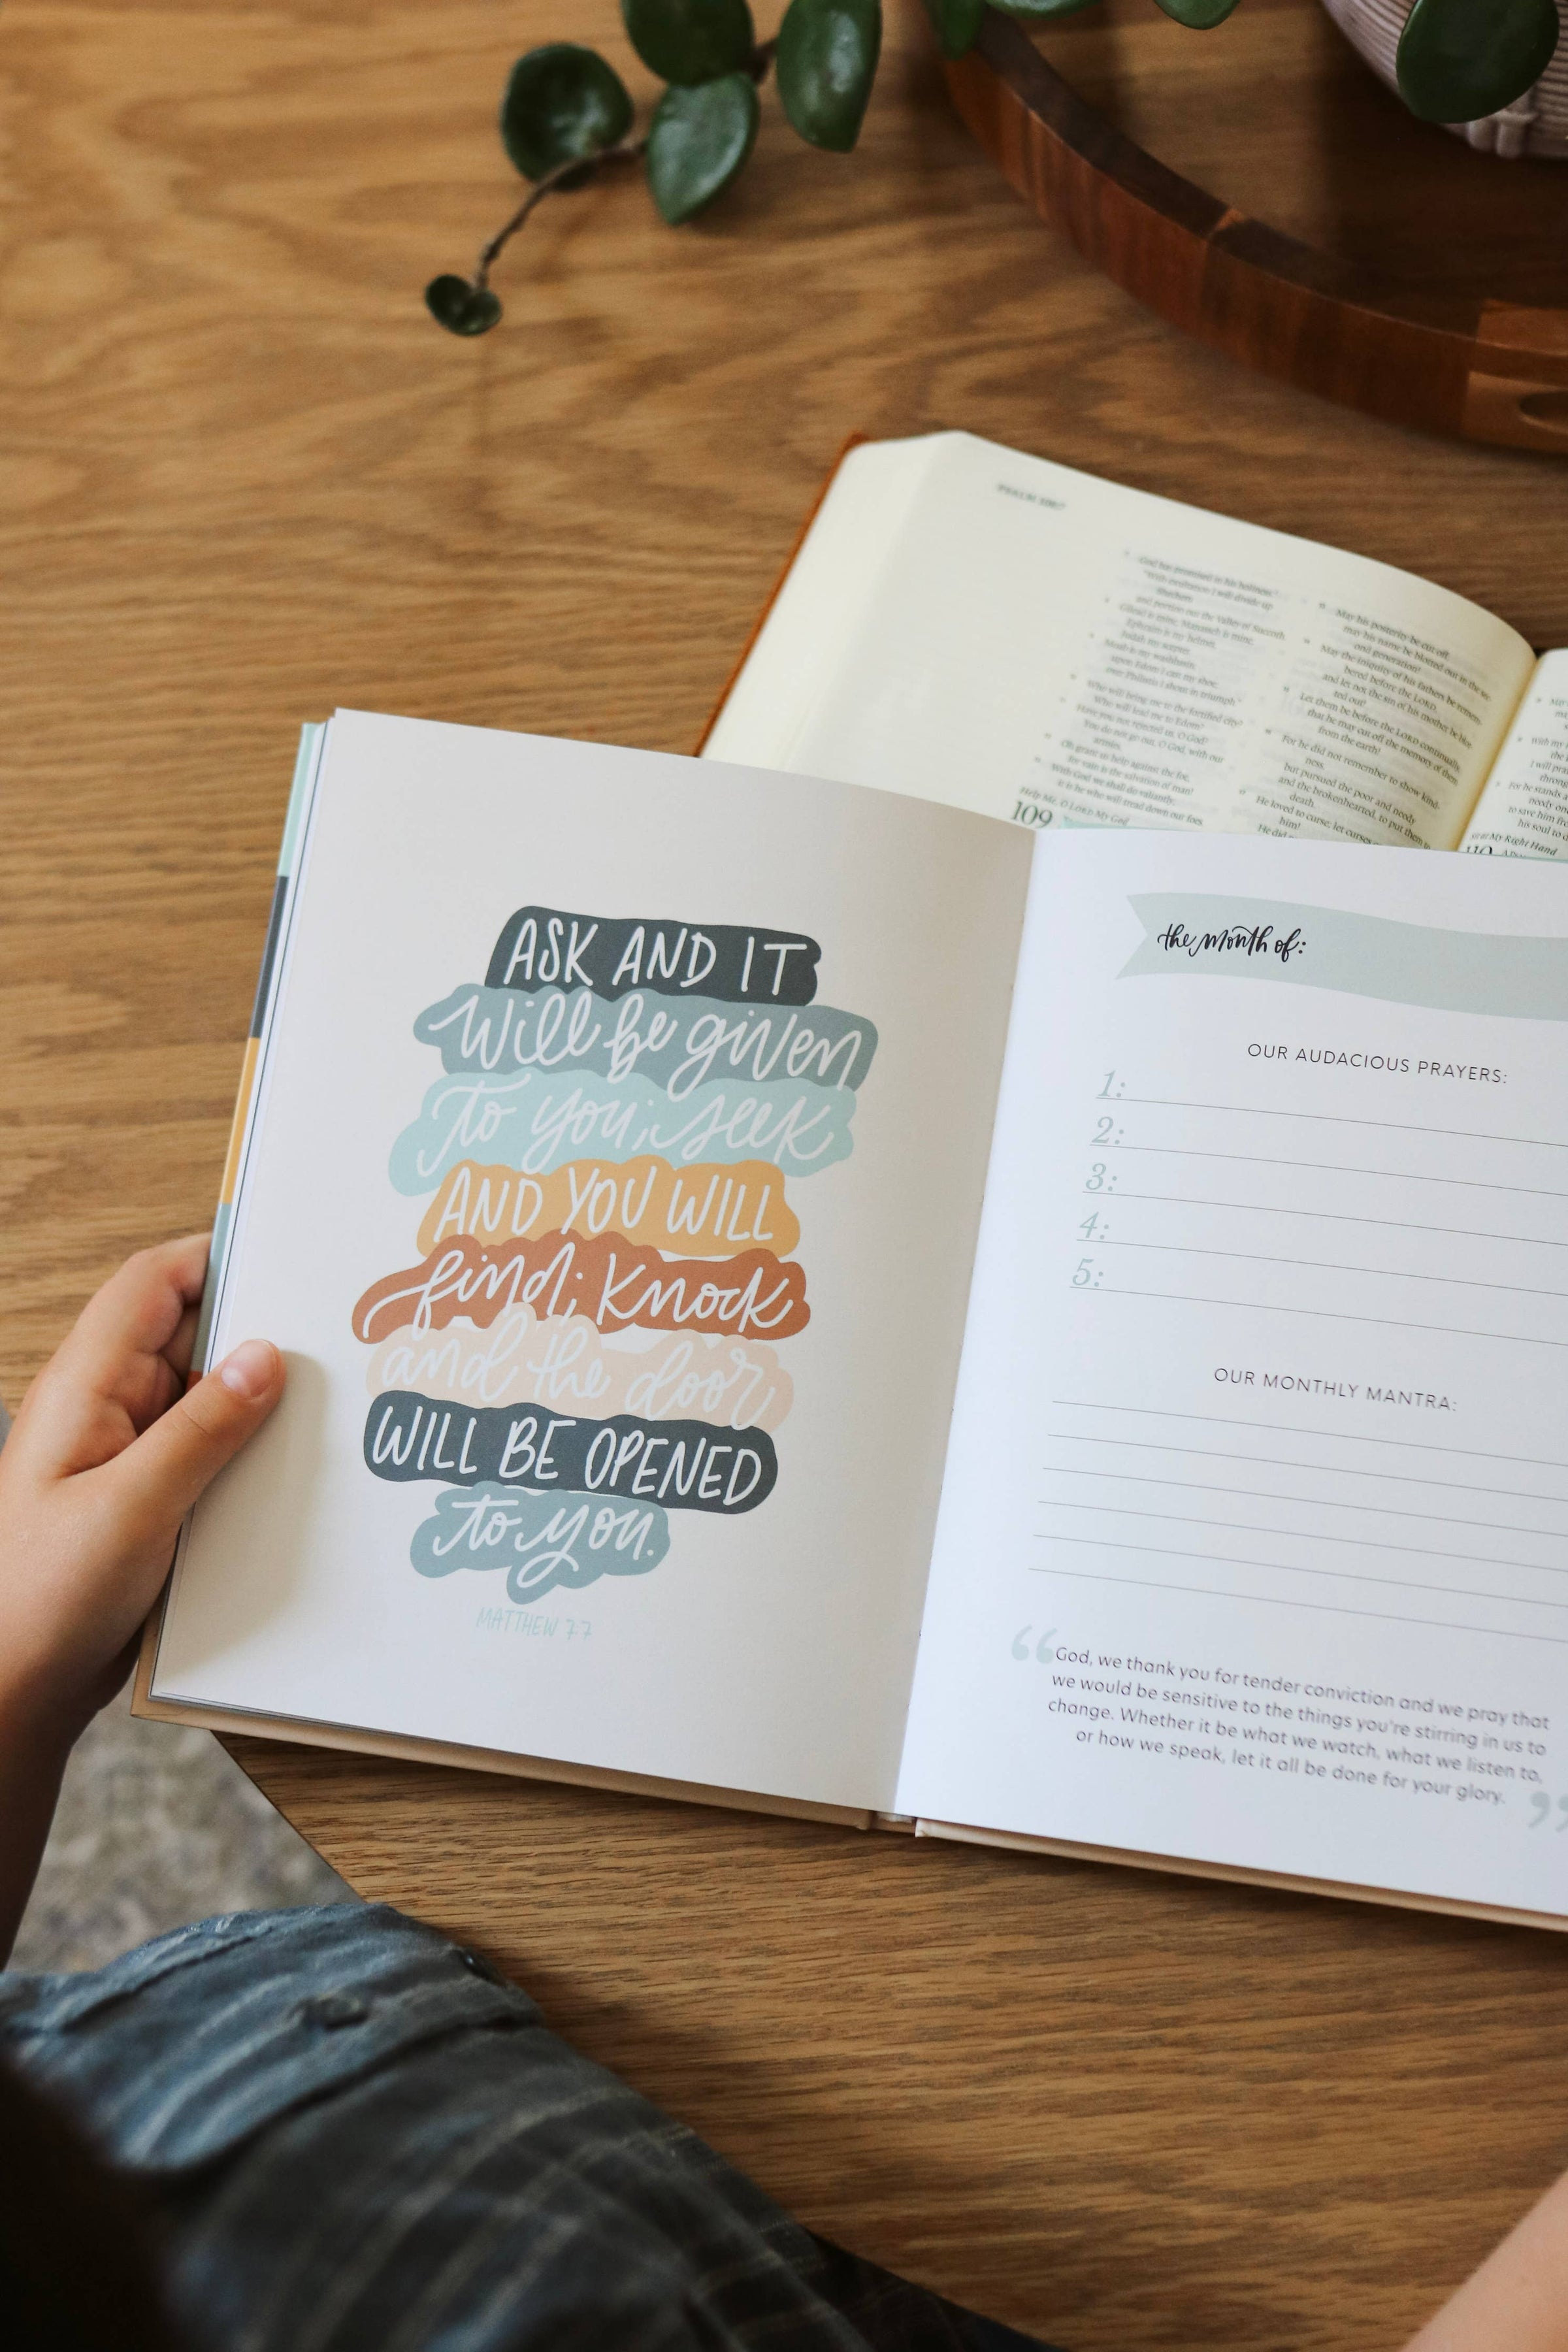 PSALM 108:7
God has promised in his holiness:
"With exultation I will divide up
Shechem
and portion out the Valley of Succoth.
Gilead is mine; Manasseh is mine;
Ephraim is my helmet,
Judah my scepter.
Moab is my washbasin;
upon Edom I cast my shoe;
over Philistia I shout in triumph."
Who will bring me to the fortified city?
Who will lead me to Edom?
Have you not rejected us, O God?
You do not go out, O God, with our
armies.
Oh grant us help against the foe,
for vain is the salvation of man!
With God we shall do valiantly;
it is he who will tread down our foes.
Help Me, O LORD My God
109
May his posterity be cut off;
may his name be blotted out in the
ond generation!
May the iniquity of his fathers be remem-
bered before the LORD,
and let not the sin of his mother be blot-
ted out!
Let them be before the LORD continually,
that he may cut off the memory of them
from the earth!
For he did not remember to show kind-
ness,
but pursued the poor and needy
and the brokenhearted, to put them to
death.
He loved to curse; let curses
him!
He did
With my
I will
for he stands a
needy one
to save him fr
his soul to d
at My Right Hand
110
ASK AND IT
will be given
to you; seek
AND YOU WILL
find; knock
and the door
WILL BE OPENED
to you.
MATTHEW 7:7
the month of:
OUR AUDACIOUS PRAYERS:
1:
2:
3:
4:
5:
OUR MONTHLY MANTRA:
“God, we thank you for tender conviction and we pray that
we would be sensitive to the things you're stirring in us to
change. Whether it be what we watch, what we listen to,
or how we speak, let it all be done for your glory. ”